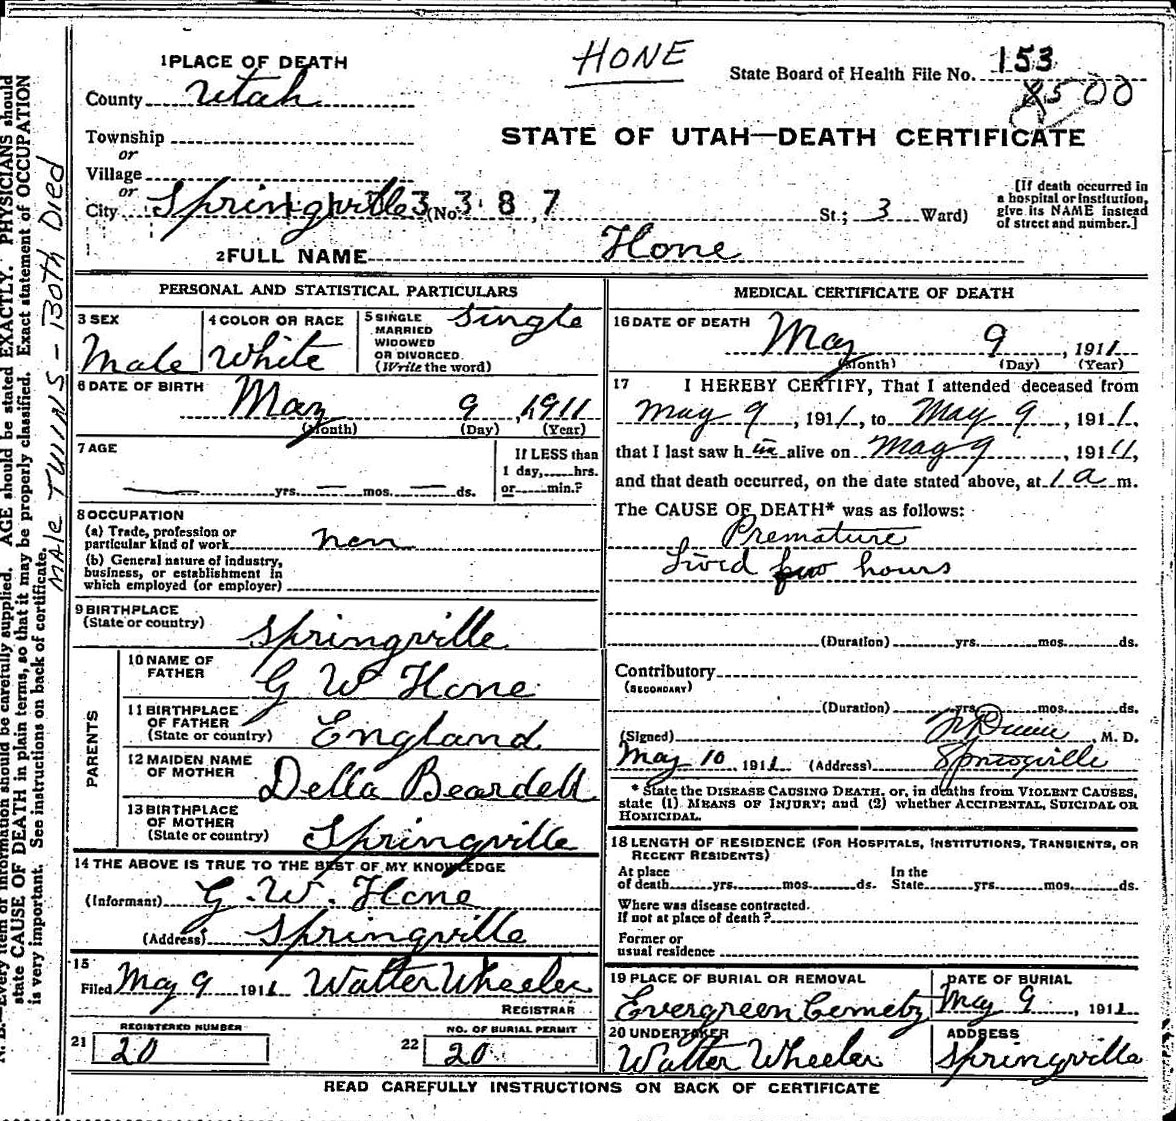 HONE
1 PLACE OF DEATH
State Board of Health File No. 153
8500
County Utah
Township
STATE OF UTAH—DEATH CERTIFICATE
or
Village
or
City Springville (No. 3 3 8 7 St.; 3 Ward)
[If death occurred in
a hospital or institution,
give its NAME instead
of street and number.]
2 FULL NAME Hone
PERSONAL AND STATISTICAL PARTICULARS
3 SEX
Male
4 COLOR OR RACE
White
5 SINGLE
MARRIED
WIDOWED
OR DIVORCED.
(Write the word)
Single
6 DATE OF BIRTH
May 9, 1911
(Month) (Day) (Year)
7 AGE
yrs. mos. ds.
If LESS than
1 day, hrs.
or min.?
8 OCCUPATION
(a) Trade, profession or
particular kind of work
(b) General nature of industry,
business, or establishment in
which employed (or employer)
9 BIRTHPLACE
(State or country) Springville
PARENTS
10 NAME OF
FATHER G W Hone
11 BIRTHPLACE
OF FATHER
(State or country) England
12 MAIDEN NAME
OF MOTHER Della Beardell
13 BIRTHPLACE
OF MOTHER
(State or country) Springville
14 THE ABOVE IS TRUE TO THE BEST OF MY KNOWLEDGE
(Informant) G. W. Hone
(Address) Springville
15
Filed May 9 1911 Walter Wheeler
REGISTRAR
21 REGISTERED NUMBER
20
22 NO. OF BURIAL PERMIT
20
MEDICAL CERTIFICATE OF DEATH
16 DATE OF DEATH
May 9, 1911
(Month) (Day) (Year)
17 I HEREBY CERTIFY, That I attended deceased from
May 9, 1911, to May 9, 1911,
that I last saw him alive on May 9, 1911,
and that death occurred, on the date stated above, at 1 a m.
The CAUSE OF DEATH* was as follows:
Premature
Lived few hours
(Duration) yrs. mos. ds.
Contributory
(SECONDARY)
(Duration) yrs. mos. ds.
(Signed) M. D.
May 10, 1911 (Address) Springville
* State the DISEASE CAUSING DEATH, or, in deaths from VIOLENT CAUSES,
state (1) MEANS OF INJURY; and (2) whether ACCIDENTAL, SUICIDAL OR
HOMICIDAL.
18 LENGTH OF RESIDENCE (FOR HOSPITALS, INSTITUTIONS, TRANSIENTS, OR
RECENT RESIDENTS)
At place
of death yrs. mos. ds.
In the
State yrs. mos. ds.
Where was disease contracted.
If not at place of death?
Former or
usual residence
19 PLACE OF BURIAL OR REMOVAL
Evergreen Cemetery
DATE OF BURIAL
May 9, 1911
20 UNDERTAKER
Walter Wheeler
ADDRESS
Springville
READ CAREFULLY INSTRUCTIONS ON BACK OF CERTIFICATE
N. B.—Every item of information should be carefully supplied. AGE should be stated EXACTLY. PHYSICIANS should
state CAUSE OF DEATH in plain terms, so that it may be properly classified. Exact statement of OCCUPATION
is very important. See instructions on back of certificate.
MALE TWINS - BOTH DIED